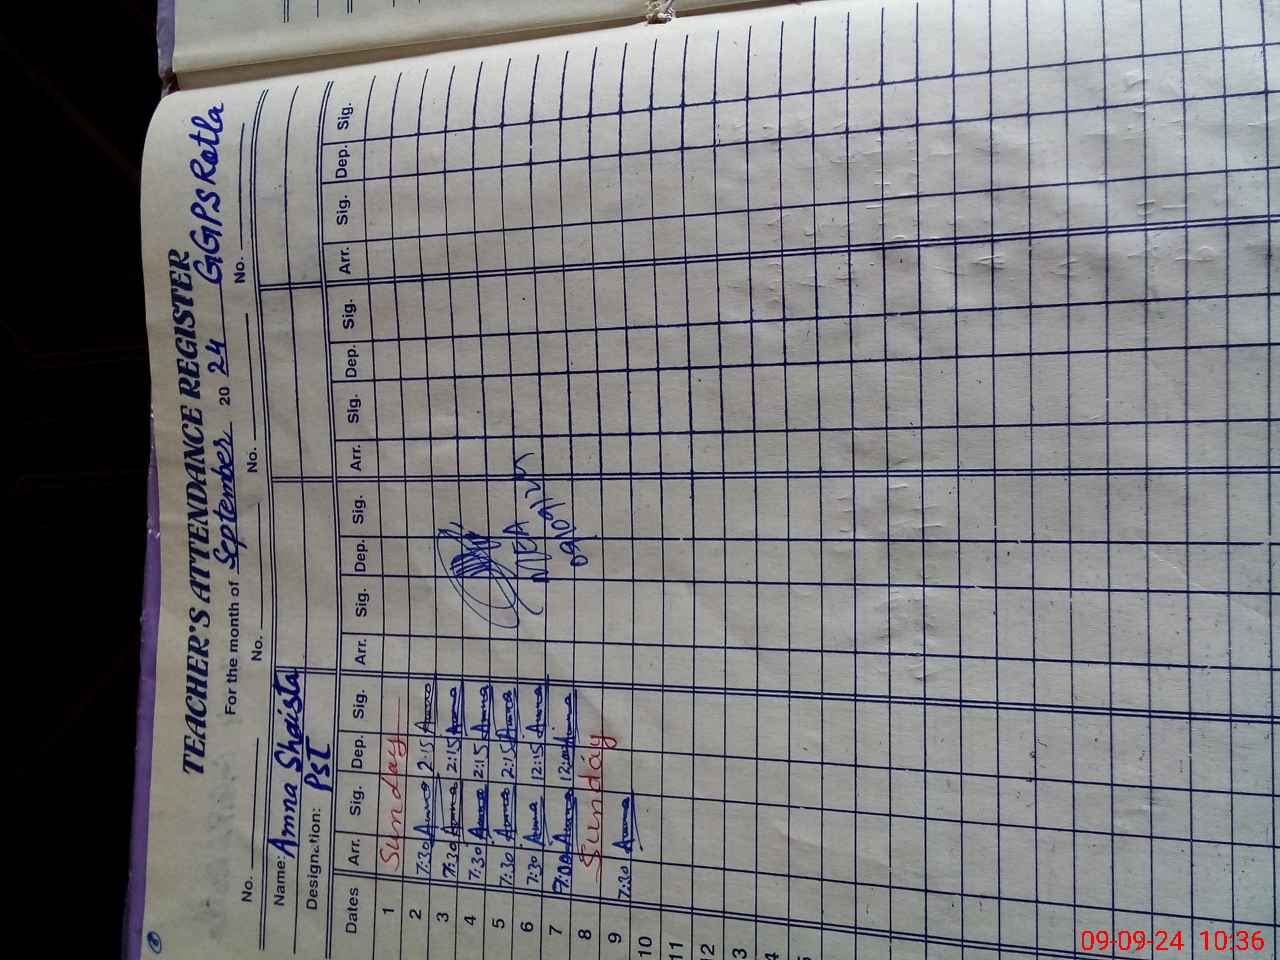 TEACHER'S ATTENDANCE REGISTER
For the month of September 2024 GGPS Ratla
No. No. No. No.
Name: Amna Shaista
Designation: PST
Dates Arr. Sig. Dep. Sig. Arr. Sig. Dep. Sig. Arr. Sig. Dep. Sig. Arr. Sig. Dep. Sig.
1 Sunday
2 7:30 Amna 2:15 Amna
3 7:30 Amna 2:15 Amna
4 7:30 Amna 2:15 Amna
5 7:30 Amna 2:15 Amna
6 7:30 Amna 12:15 Amna
7 7:00 Amna Amna
8 Sunday
9 7:30 Amna
10
11
12
3
4
5
MEA
09/09/24
09-09-24 10:36